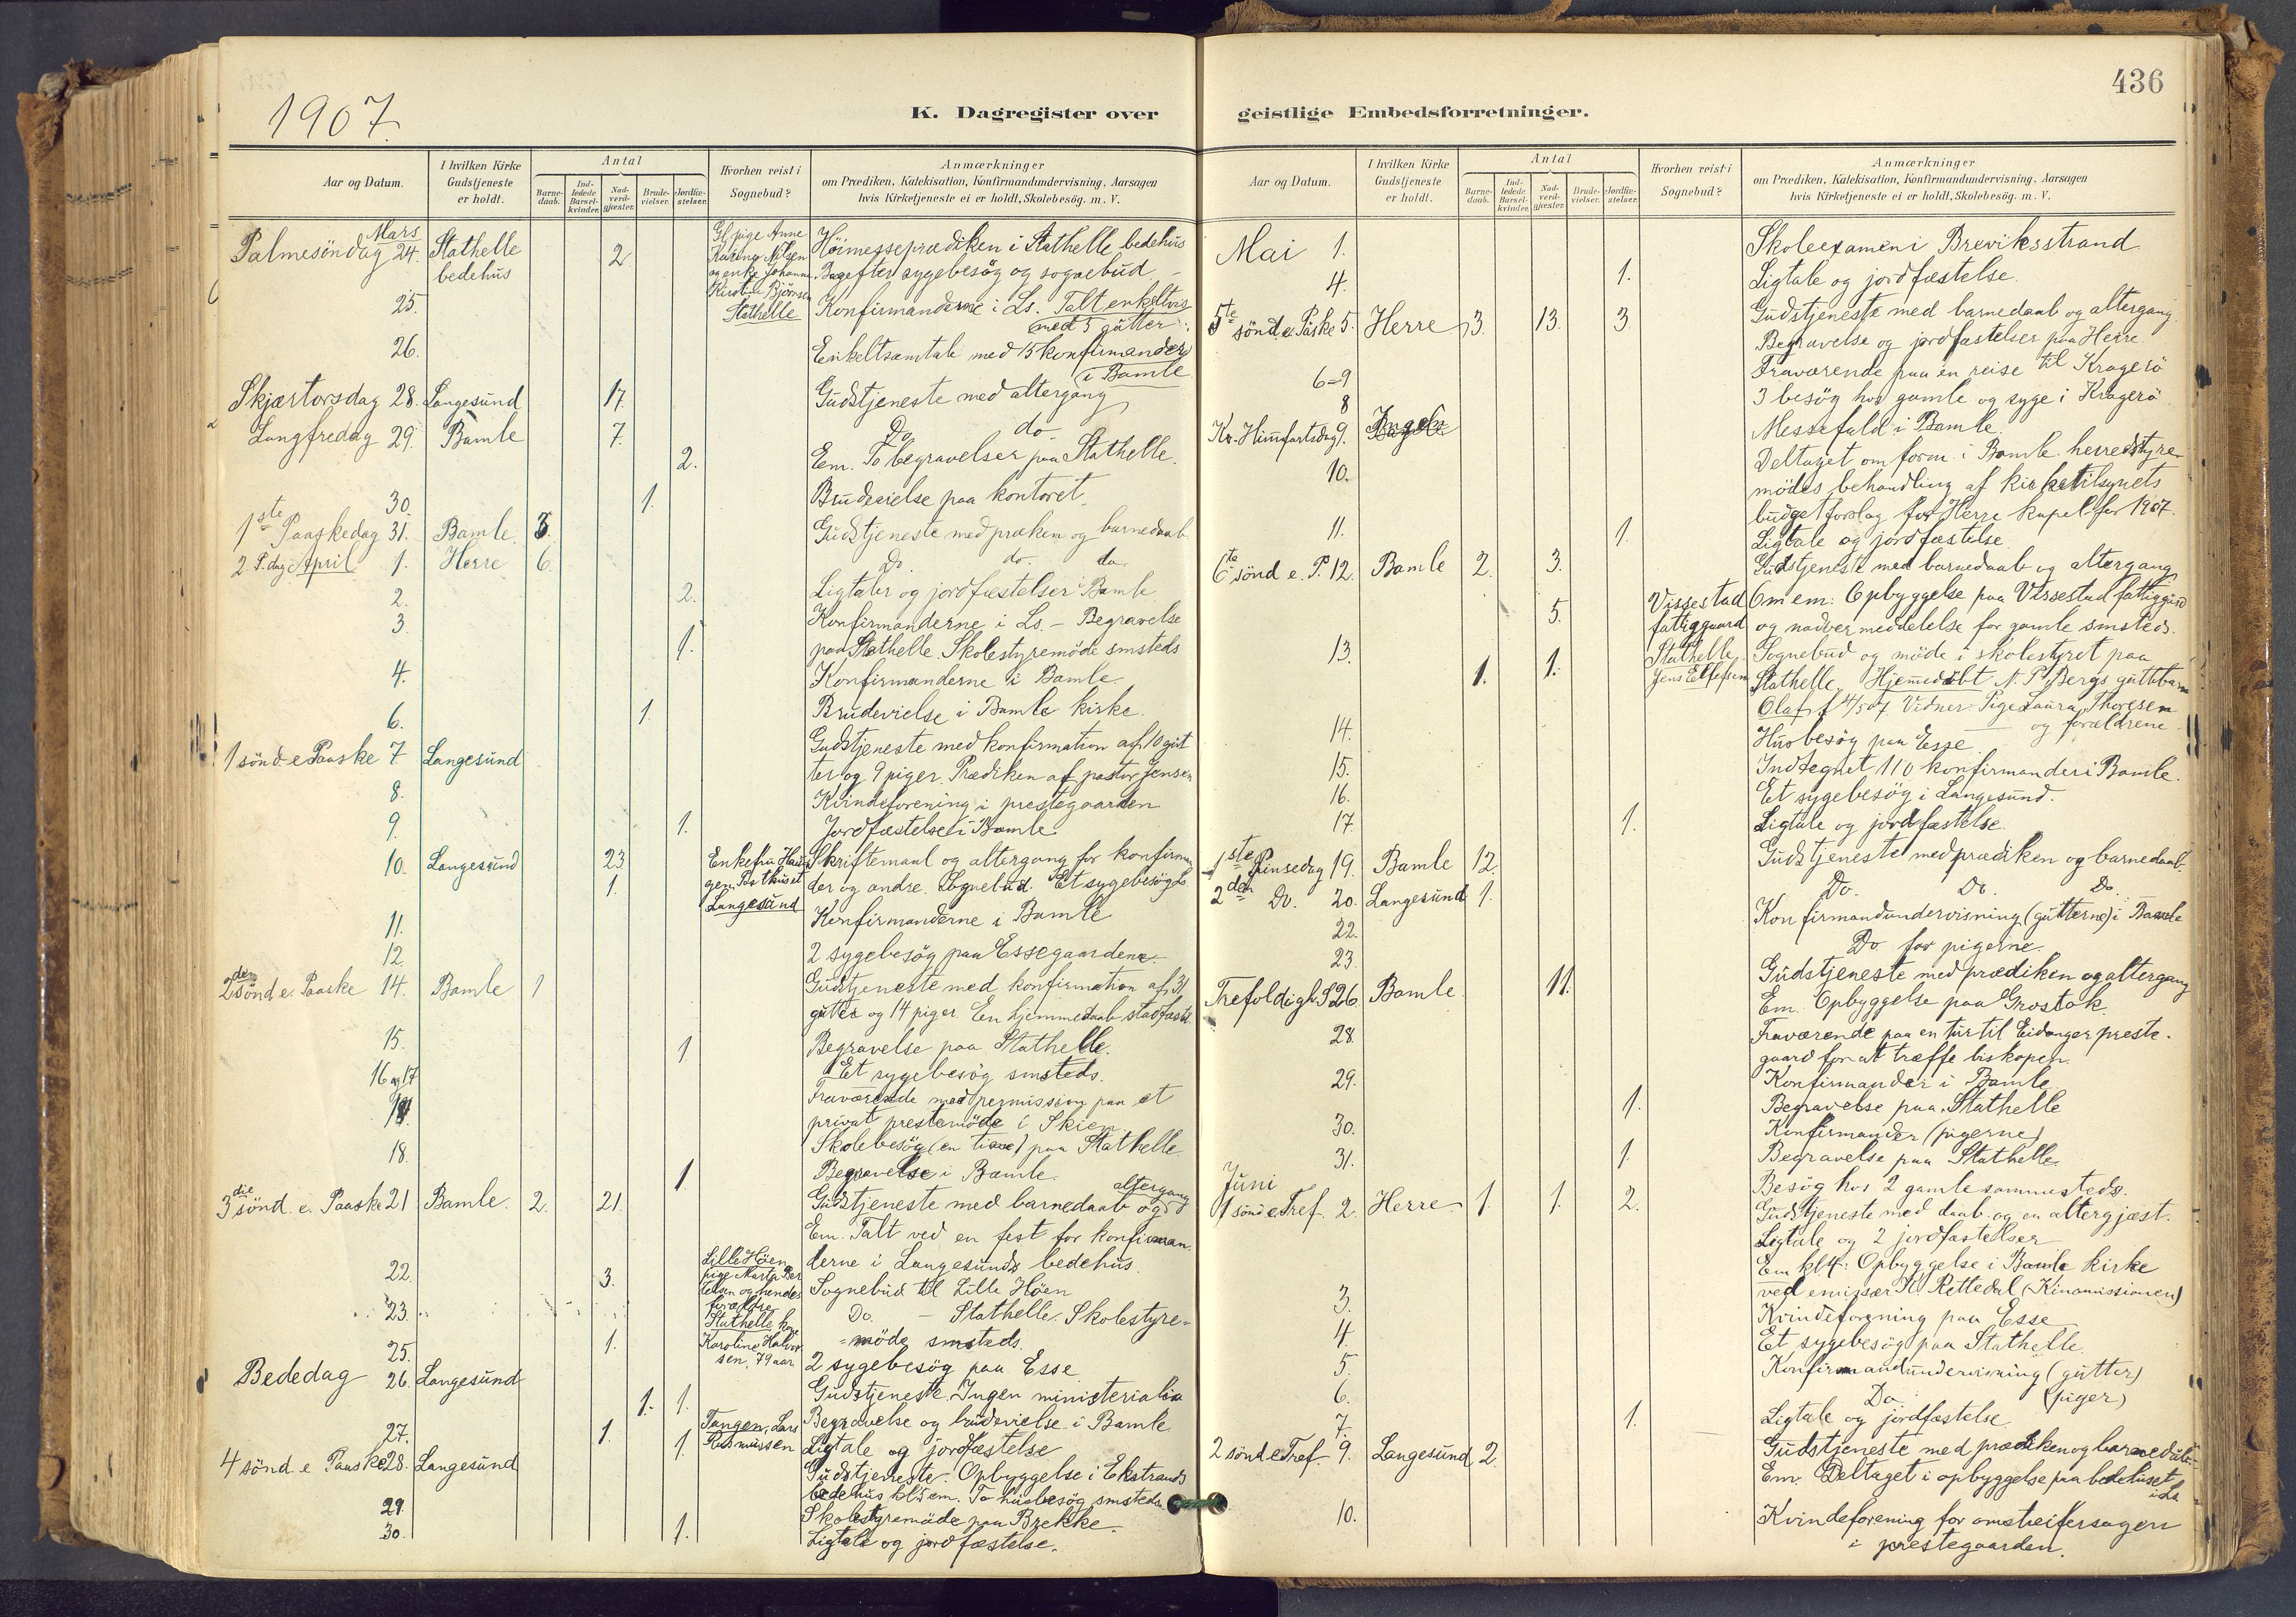 1907.
K. Dagregister over
Aar og Datum.
I hvilken Kirke Gudstjeneste er holdt.
Antal
Barne-daab.
Ind-ledede Barsel-kvinder.
Nad-verd-gjæster.
Brude-vielser.
Jordfæ-stelser.
Hvorhen reist i Sognebud?
Anmærkninger
om Prædiken, Katekisation, Konfirmandundervisning, Aarsagen
hvis Kirketjeneste ei er holdt, Skolebesög. m. V.
Mars
Palmesöndag 24. Stathelle bedehus 2 Gl. pige Anne Karine Nilsen og enke Johanne Kirstine Björnsen Stathelle Höimesseprædiken i Stathelle bedehus
Bagefter sygebesög og sognebud.
25. Konfirmanderne i Ls. Talt enkeltvis
med 5 gutter.
26. Enkeltsamtale med 15 konfirmander
i Bamle
Skjærtorsdag 28. Langesund 17. Gudstjeneste med altergang
Langfredag 29. Bamle 7. Do. do.
2. Em. To begravelser paa Stathelle.
30. 1. Brudevielse paa kontoret.
1ste Paaskedag 31. Bamle. 3. Gudstjeneste med præken og barnedaab.
2 P. dag April 1. Herre 6. Do. do. do.
2. 2. Ligtaler og jordfæstelser i Bamle
3. Konfirmanderne i Ls. - Begravelse
1. paa Stathelle. Skolestyremöde smsteds
4. Konfirmanderne i Bamle.
6. 1. Brudevielse i Bamle kirke.
1 sönd. e Paaske 7 Langesund Gudstjeneste med konfirmation af 10 gut
ter og 9 piger. Prædiken af pastor Jensen
8. Kvindeforening i prestegaarden
9. 1. Jordfæstelse i Bamle
10. Langesund 23 Enkefru Posthuset Langesund Skriftemaal og altergang for konfirman
1. der og andre. Sognebud. Et sygebesög Ls.
11. Konfirmanderne i Bamle
12. 2 sygebesög paa Essegaardene.
2den sönd e. Paaske 14. Bamle 1 Gudstjeneste med konfirmation af 31
gutter og 14 piger. En hjemmedaab stadfæstet
15. 1 Begravelse paa Stathelle.
Et sygebesög smsteds.
16 og 17 Fraværende med permission paa et
privat prestemöde i Skien.
18. Skolebesög (en time) paa Stathelle
1 Begravelse i Bamle.
3die sönd. e. Paaske 21 Bamle. 2. 21. Gudstjeneste med barnedaab og altergang
Em. Talt ved en fest for konfirman
derne i Langesunds bedehus.
22. 3. Lille Höen pige og hendes forældre Sognebud til Lille Höen
23. 1. Stathelle Karoline Halvorsen, 79 aar Do. - Stathelle. Skolestyre=
=möde smsteds.
25. 2 sygebesög paa Esse
Bededag 26. Langesund Gudstjeneste. Ingen ministerialia
1. 1. Begravelse og brudevielse i Bamle
27. 1. 1. Tangen, Lars Rasmussen Ligtale og jordfæstelse
4 sönd. e Paaske 28. Langesund Gudstjeneste. Opbyggelse i Ekstrands
bedehus kl 5 em. To husbesög smsteds.
29. Skolestyremöde paa Brekke.
30. 1. Ligtale og jordfæstelse.
436
geistlige Embedsforretninger.
Aar og Datum.
I hvilken Kirke Gudstjeneste er holdt.
Antal
Barne-daab.
Ind-ledede Barsel-kvinder.
Nad-verd-gjæster.
Brude-vielser.
Jordfæ-stelser.
Hvorhen reist i Sognebud?
Anmærkninger
om Prædiken, Katekisation, Konfirmandundervisning, Aarsagen
hvis Kirketjeneste ei er holdt, Skolebesög. m. V.
Mai 1. Skoleexamen i Breviksstrand
4. 1. Ligtale og jordfæstelse.
5te sönd. e. Paske 5. Herre 3. 13. 3. Gudstjeneste med barnedaab og altergang.
Begravelse og jordfæstelser paa Herre.
6=9 Fraværende paa en reise til Kragerö
8 3 besög hos gamle og syge i Kragerö
Kr. Himmfartsdag 9. Messefald i Bamle.
10. Deltaget om form. i Bamle herredstyre
mödes behandling af kirketilsynets
budgetforslag for Herre kapel for 1907.
11. 1. Ligtale og jordfæstelse
6te sönd e. P. 12. Bamle 2. 3. Gudstjeneste med barnedaab og altergang
5. Vissestad fattiggaard Om em. Opbyggelse paa Vissestad fattiggård
og nadvermeddelelse for gamle smsteds.
13. 1. 1. Stathelle, Jens Ellefsen Sognebud og möde i skolestyret paa
Stathelle. Hjemmedöbt N. P. Bergs guttebarn
Olaf Vidner Pige Laura Thoresen
og forældrene
14. Husbesög paa Esse
15. Indtegnet 110 konfirmander i Bamle.
16. Et sygebesög i Langesund.
17. 1. Ligtale og jordfæstelse
1ste Pinsedag 19. Bamle 12. Gudstjeneste med prædiken og barnedaab.
2den Do. 20. Langesund 1. Do. Do. Do.
22. Konfirmandundervisning (gutterne) i Bamle
23. Do for pigerne.
Trefoldigh. S. 26. Bamle 11. Gudstjeneste med prædiken og altergang
Em. Opbyggelse paa Grostok.
28. Fraværende paa en tur til Eidanger preste-
gaard for at træffe biskopen.
29. Konfirmander i Bamle
1. Begravelse paa Stathelle
30. Konfirmander (pigerne)
31. 1. Begravelse paa Stathelle
Juni Besög hos 2 gamle sammesteds.
1 sönd e. Tref. 2. Herre 1. 1. 2. Gudstjeneste med daab og en altergjæst.
Ligtale og 2 jordfæstelser
Em. kl 4: Opbyggelse i Bamle kirke
ved emissær Kl. Rettedal (Kinamissionen)
3. Kvindeforening paa Esse
4. Et sygebesög paa Stathelle.
5. Konfirmandundervisning (gutter)
6. Do (piger)
7. 1. Ligtale og jordfæstelse
2 sönd e Tref. 9. Langesund 2. Gudstjeneste med prædiken og barnedåb.
Em. Deltaget i opbyggelse paa bedehuset
i Ls
10. Kvindeforening for omstreifersagen
i prestegaarden.